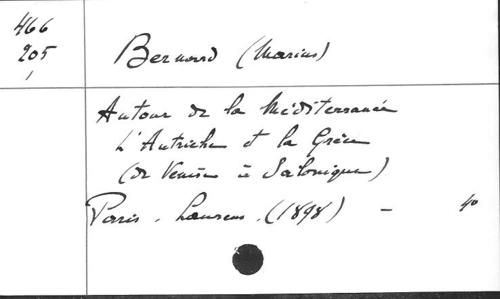 466
205
1
Bernard (Marius)
Autour de la Méditerranée
L'Autriche et la Grèce
(de Venise à Salonique)
Paris. Laurens. (1898) - 4º